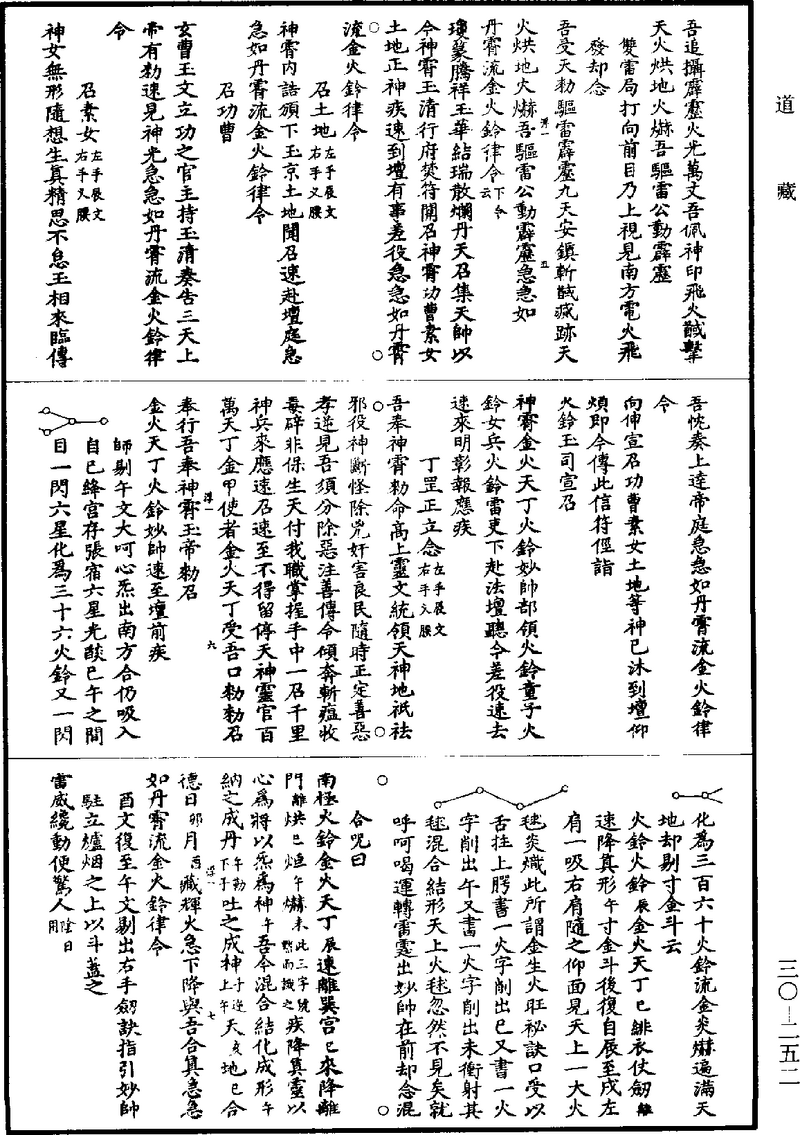 道藏
吾追攝霹靂火光萬丈吾佩神印飛火馘擊
天火烘地火爀吾驅雷公動霹靂
雙雷局打向前目乃上視見南方電火飛
發却念
吾受天勑驅雷霹靂九天安鎮斬馘滅跡天
火烘地火爀吾驅雷公動霹靂急急如
丹霄流金火鈴律令云下令
瓊篆騰祥玉華結瑞散爛丹天召集天帥以
今神霄玉清行府焚符開召神霄功曹素女
土地正神疾速到壇有事差役急急如丹霄
流金火鈴律令
召土地左手展文右手义腰
神霄內誥頒下玉京土地聞召速赴壇庭急
急如丹霄流金火鈴律令
召功曹
玄曹玉文立功之官主持玉清奏告三天上
帝有勑速見神光急急如丹霄流金火鈴律
令
召素女左手展文右手义腰
神女無形隨想生真精思不怠玉相來臨傳
吾忱奏上達帝庭急急如丹霄流金火鈴律
令
向伸宣召功曹素女土地等神已沐到壇仰
煩即今傳此信符徑詣
火鈴玉司宣召
神霄金火天丁火鈴妙帥部領火鈴童子火
鈴女兵火鈴雷吏下赴法壇聽令差役速去
速來明彰報應疾
丁罡正立念左手展文右手义腰
吾奉神霄勑命高上靈文統領天神地祇祛
邪役神斷怪除兇奸害良民隨時正定善惡
孝逆見吾須分除惡注善傳令傾奔斬瘟收
毒碎非保生天付我職掌握手中一召千里
神兵來應速召速至不得留停天神靈官百
萬天丁金甲使者金火天丁受吾口勑勑召
奉行吾奉神霄玉帝勑召
金火天丁火鈴妙帥速至壇前疾
師剔午文大呵心炁出南方合仍吸入
自己絳宮存張宿六星光燄巳午之間
目一閃六星化為三十六火鈴又一閃
化為三百六十火鈴流金炎爀遍滿天
地却剔寸金斗云
火鈴火鈴辰金火天丁巳緋衣仗劒離
速降真形午寸金斗後復自辰至戌左
肩一吸右肩隨之仰面見天上一大火
毬炎熾此所謂金生火旺秘訣口受以
舌拄上腭書一火字削出巳又書一火
字削出午又書一火字削出未衝射其
毬混合結形天上火毬忽然不見矣就
呼呵喝運轉雷霆出妙帥在前却念混
合咒曰
南極火鈴金火天丁辰速離巽宮巳來降離
門離烘巳烜午爀未此三字號黙而識之疾降真靈以
心為將以炁為神午吾今混合結化成形午
納之成丹午勒下子吐之成神子逆上午天亥地巳合
德日卯月酉藏輝火急下降與吾合真急急
如丹霄流金火鈴律令
酉文復至午文剔出右手劒訣指引妙帥
駐立爐烟之上以斗蓋之
雷威纔動便驚人陰日用
三〇-二五二